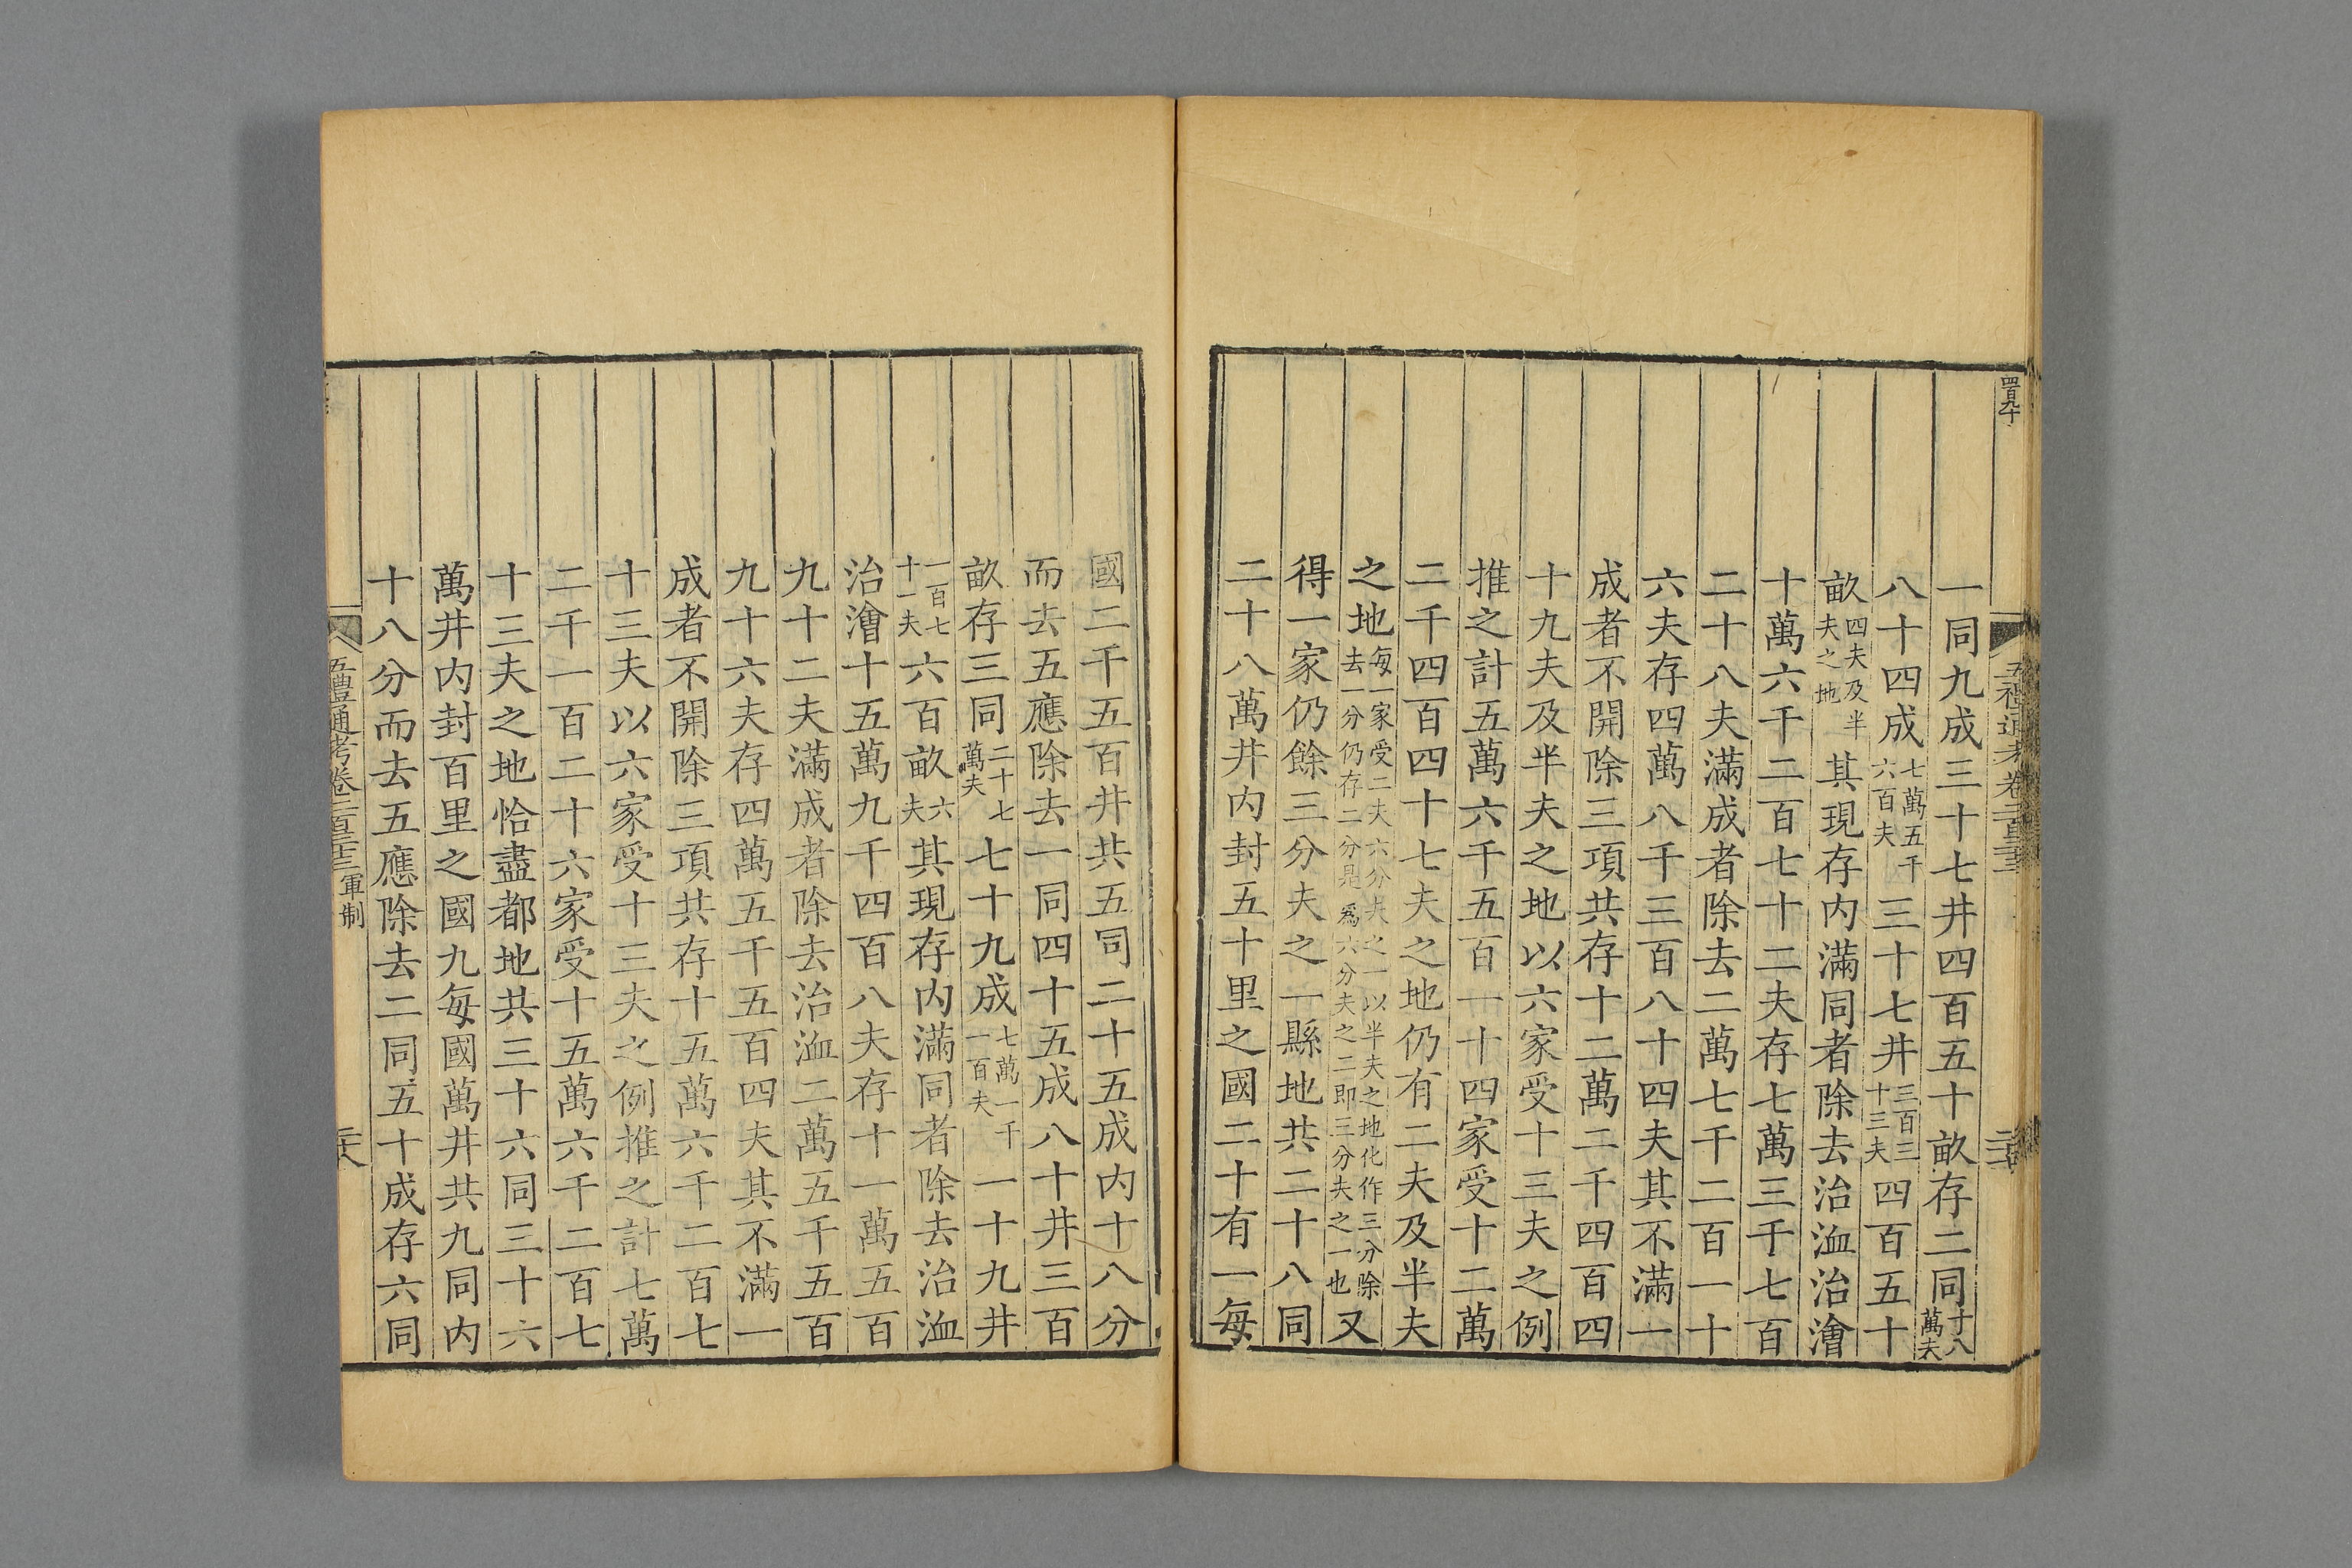 一同九成三十七井四百五十畝存二同十八萬夫
八十四成七萬五千六百夫三十七井三百三十三夫四百五十
畝四夫及半夫之地其現存內滿同者除去治洫治澮
十萬六千二百七十二夫存七萬三千七百
二十八夫滿成者除去二萬七千二百一十
六夫存四萬八千三百八十四夫其不滿一
成者不開除三項共存十二萬二千四百四
十九夫及半夫之地以六家受十三夫之例
推之計五萬六千五百一十四家受十二萬
二千四百四十七夫之地仍有二夫及半夫
之地每一家受二夫六分夫之一以半夫之地化作三分除去一分仍存二分是爲六分夫之二即三分夫之一也又
得一家仍餘三分夫之一縣地共二十八同
二十八萬井內封五十里之國二十有一每
國二千五百井共五同二十五成內十八分
而去五應除去一同四十五成八十井三百
畝存三同二十七萬夫七十九成七萬一千一百夫一十九井
一百七十一夫六百畝六夫其現存內滿同者除去治洫
治澮十五萬九千四百八夫存十一萬五百
九十二夫滿成者除去治洫二萬五千五百
九十六夫存四萬五千五百四夫其不滿一
成者不開除三項共存十五萬六千二百七
十三夫以六家受十三夫之例推之計七萬
二千一百二十六家受十五萬六千二百七
十三夫之地恰盡都地共三十六同三十六
萬井內封百里之國九每國萬井共九同內
十八分而去五應除去二同五十成存六同
五禮通考卷二百三十三 軍制